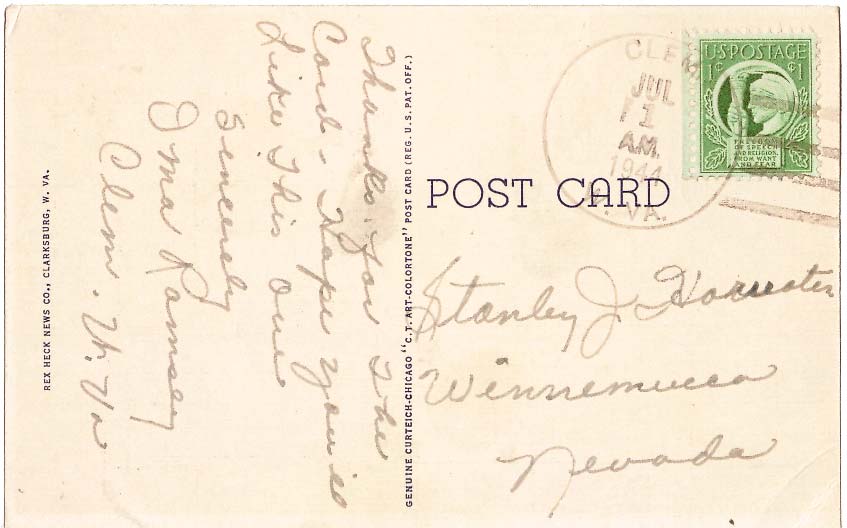 Thanks for the
Card. Hope you'll
Like This one
Sincerely
Ima Ramsey
Clem. W. Va
REX HECK NEWS CO., CLARKSBURG, W. VA.
GENUINE CURTEICH-CHICAGO "C.T. ART-COLORTONE" POST CARD (REG. U.S. PAT. OFF.)
POST CARD
CLEM
JUL
1
A.M.
1944
W. VA.
US POSTAGE
1¢ $1
FREEDOM
OF SPEECH
AND RELIGION,
FROM WANT
AND FEAR
Stanley J
Winnemucca
Nevada